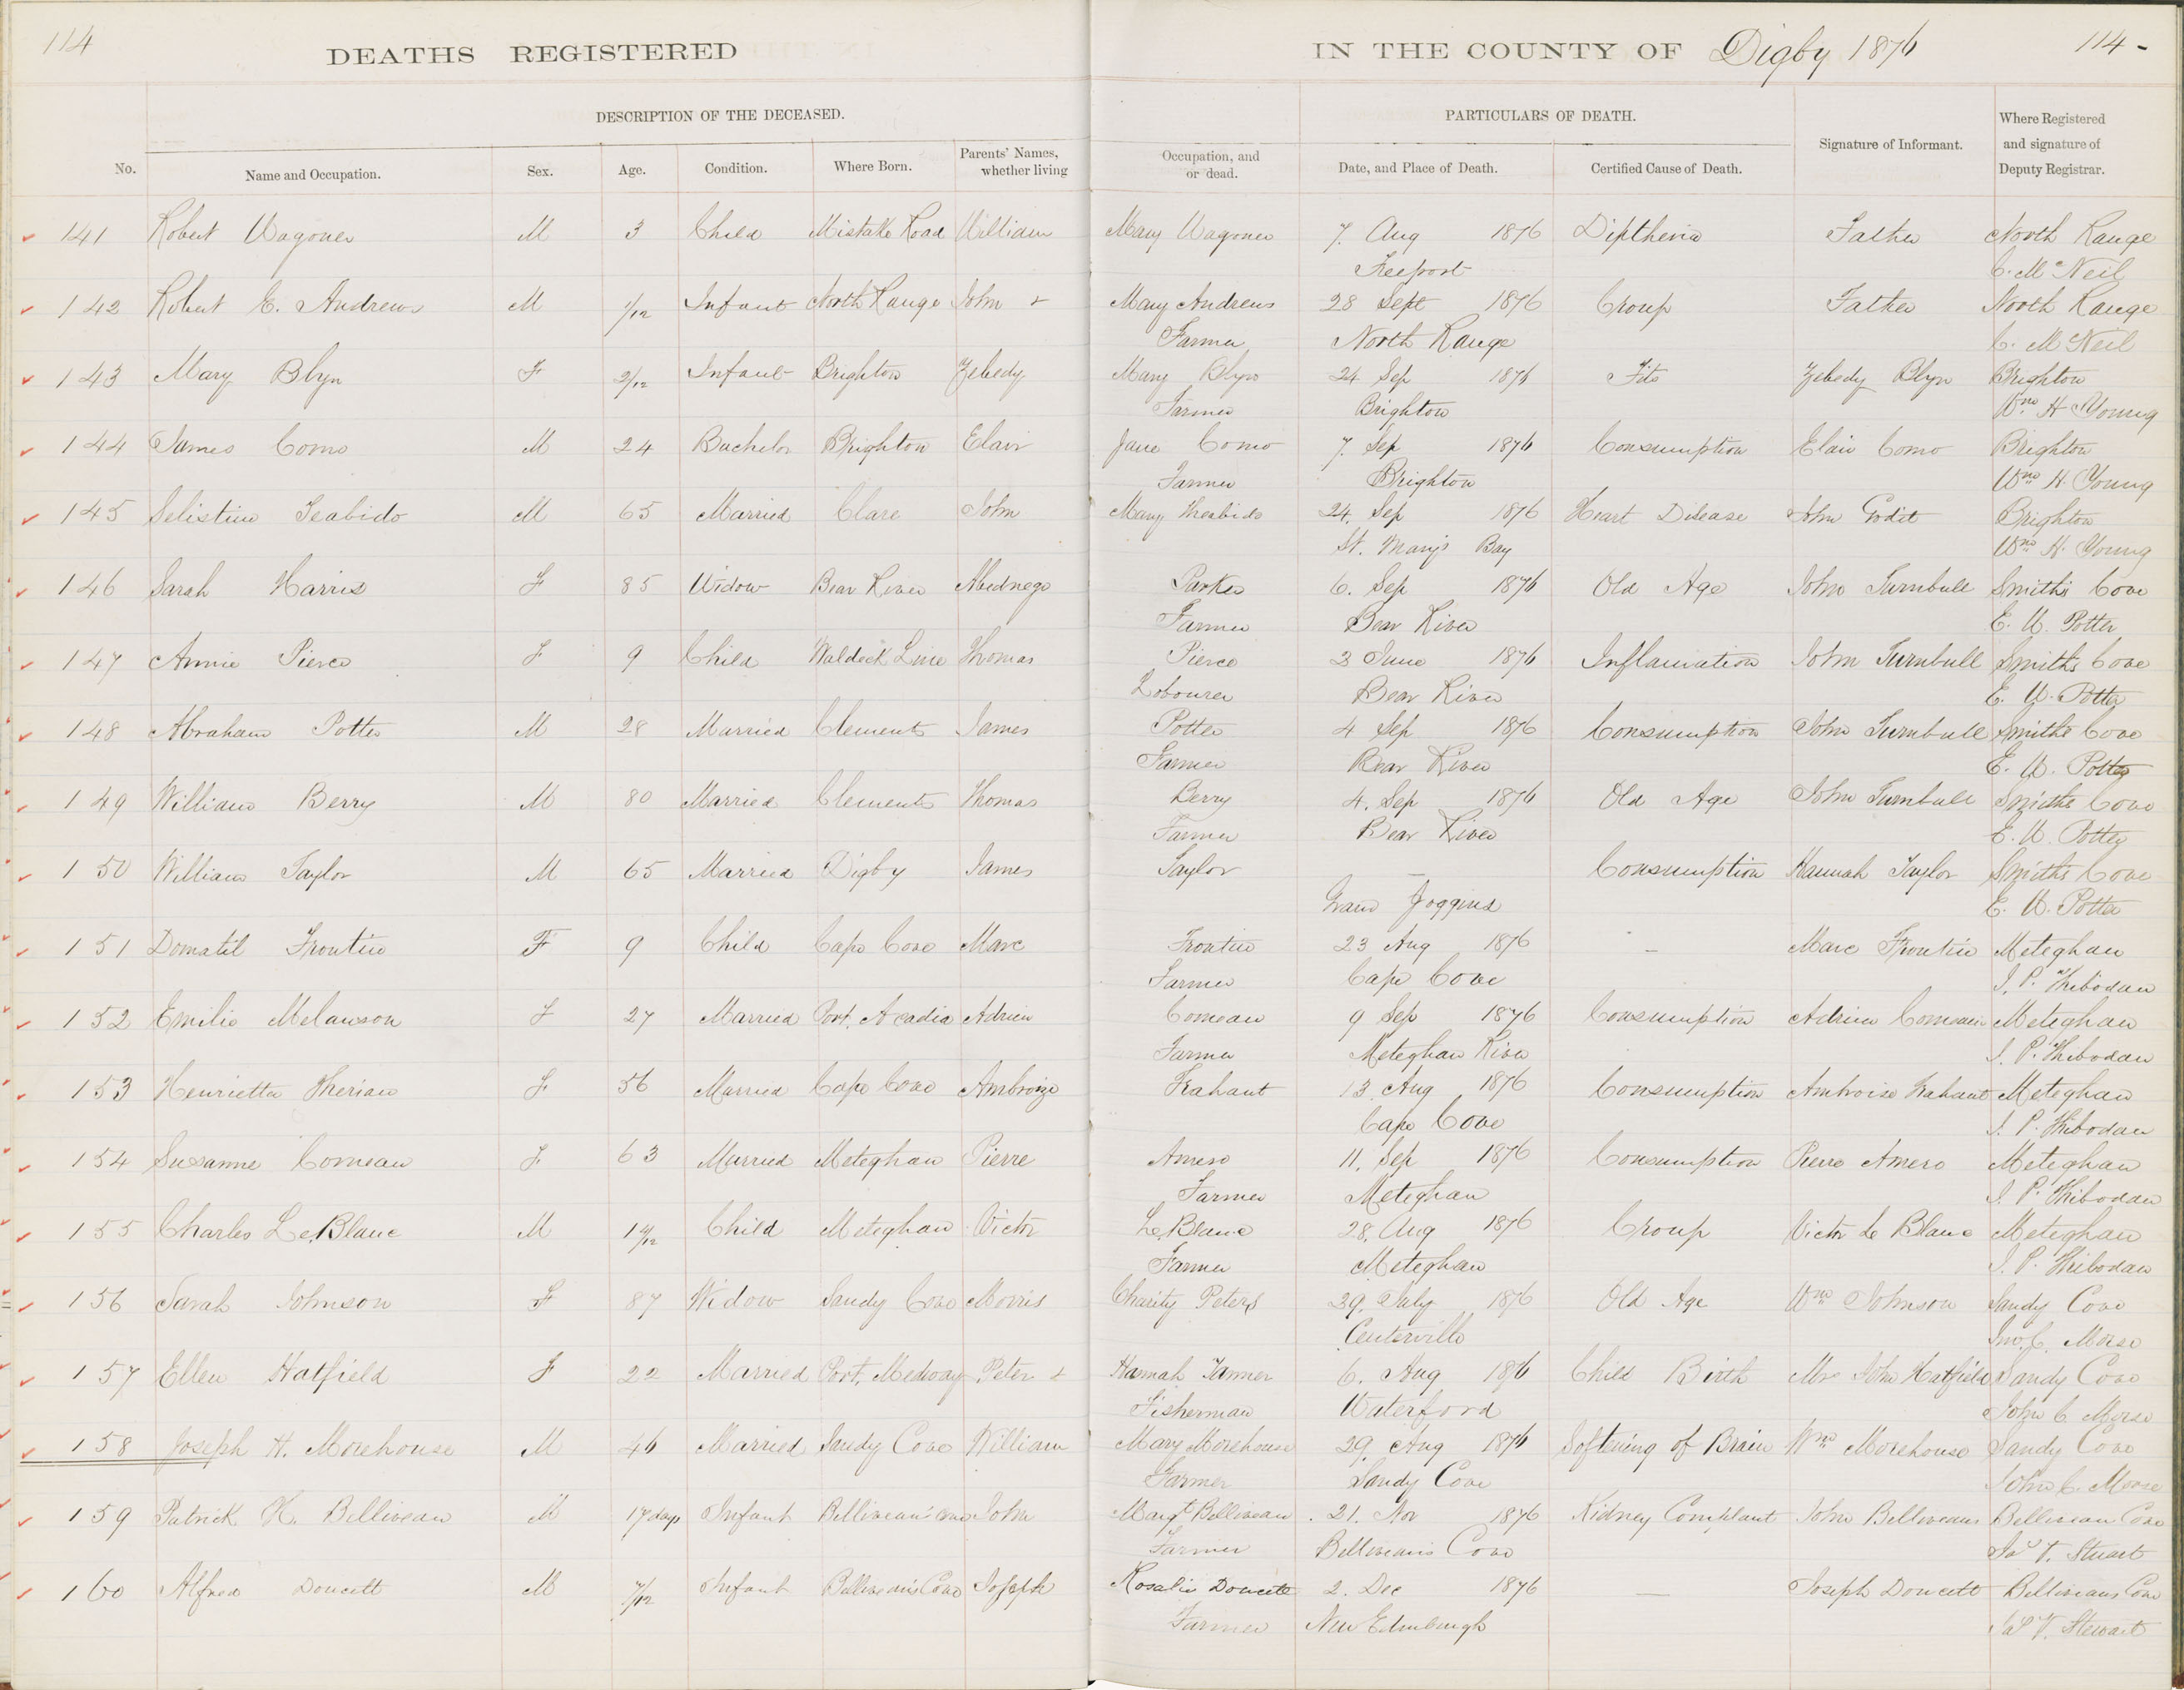 114
DEATHS REGISTERED IN THE COUNTY OF Digby 1876
114 -
DESCRIPTION OF THE DECEASED.
PARTICULARS OF DEATH.
No. Name and Occupation. Sex. Age. Condition. Where Born. Parents' Names, whether living Occupation, and or dead. Date, and Place of Death. Certified Cause of Death. Signature of Informant. Where Registered and signature of Deputy Registrar.
141 Robert Wagoner M 3 Child Mistake Road William Mary Wagoner 7. Aug 1876 Diptheria Father North Range
Freeport C. McNeil
142 Robert E. Andrews M 1/12 Infant North Range John + Mary Andrews 28 Sept 1876 Croup Father North Range
Farmer North Range C. McNeil
143 Mary Blyn F 2/12 Infant Brighton Zebedy Mary Blyn 24 Sep 1876 Fits Zebedy Blyn Brighton
Farmer Brighton Wm H Young
144 James Como M 24 Bachelor Brighton Elair Jane Como 7. Sep 1876 Consumption Elair Como Brighton
Farmer Brighton Wm H. Young
145 Selistin Teabido M 65 Married Clare John Mary Theabido 24. Sep 1876 Heart Disease John Godit Brighton
St. Mary's Bay Wm H. Young
146 Sarah Harris F 85 Widow Bear River Abednego Parker 6. Sep 1876 Old Age John Turnbull Smiths Cove
Farmer Bear River E. W. Potter
147 Annie Pierce F 9 Child Waldeck Line Thomas Pierce 2 June 1876 Inflamation John Turnbull Smiths Cove
Labourer Bear River E. W. Potter
148 Abraham Potter M 28 Married Clements James Potter 4 Sep 1876 Consumption John Turnbull Smiths Cove
Farmer Bear River E. W. Potter
149 William Berry M 80 Married Clements Thomas Berry 4. Sep 1876 Old Age John Turnbull Smiths Cove
Farmer Bear River E. W. Potter
150 William Taylor M 65 Married Digby James Taylor — Consumption Hannah Taylor Smiths Cove
Grand Joggins E. W. Potter
151 Domatil Frontin F 9 Child Cape Cove Marc Frontin 23 Aug 1876 — Marc Frontin Meteghan
Farmer Cape Cove J. P. Thibodau
152 Emilie Melanson F 27 Married Port. Acadia Adrien Comeau 9 Sep 1876 Consumption Adrien Comeau Meteghan
Farmer Meteghan River J. P. Thibodau
153 Henrietta Therian F 56 Married Cape Cove Ambroize Trahant 13 Aug 1876 Consumption Ambroise Trahant Meteghan
Cape Cove J. P. Thibodau
154 Susanne Comeau F 63 Married Meteghan Pierre Amero 11. Sep 1876 Consumption Pierre Amero Meteghan
Farmer Meteghan J. P. Thibodau
155 Charles LeBlanc M Child Meteghan Victor LeBlanc 28. Aug 1876 Croup Victor Le Blanc Meteghan
Farmer Meteghan J. P. Thibodau
156 Sarah Johnson F 87 Widow Sandy Cove Morris Charity Peters 29. July 1876 Old Age Wm Johnson Sandy Cove
Centerville Jno. C. Morse
157 Ellen Hatfield F 22 Married Port. Medway Peter & Hannah Tanner 6. Aug 1876 Child Birth Mr John Hatfield Sandy Cove
Fisherman Waterford John C Morse
158 Joseph H. Morehouse M 46 Married Sandy Cove William Mary Morehouse 29. Aug 1876 Softening of Brain Wm Morehouse Sandy Cove
Farmer Sandy Cove John C. Morse
159 Patrick H. Belliveau M 17 days Infant Belliveau's Cove John Margt Belliveau 21. Nov 1876 Kidney Complaint John Belliveau Belliveau Cove
Farmer Belliveaus Cove Jas T. Stuart
160 Alfred Doucett M 7/12 Infant Belliveau's Cove Joseph Rosalie Doucett 2. Dec 1876 — Joseph Doucett Belliveaus Cove
Farmer New Edinburgh Jas T. Stewart